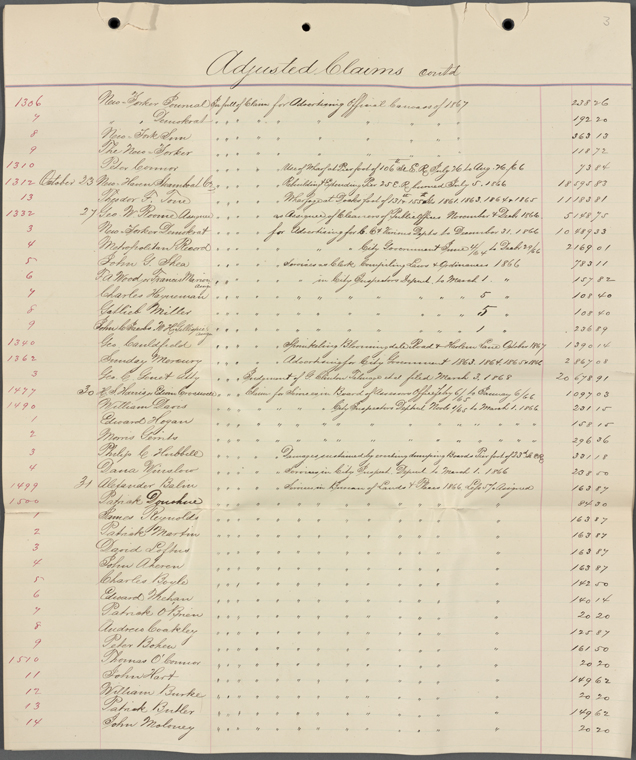 3
Adjusted Claims contd
1306 New-Yorker Journal In full of Claim for Advertising Official Canvass of 1867 238 26
7 " " Demokrat " " " " " " 192 20
8 New-York Sun " " " " " " 363 13
9 The New-Yorker " " " " " " 118 72
1310 Peter Connor " " " Use of Wharf at Pier foot of 106th St. E.R. July 76 to Aug. 76/66 73 84
1312 October 23 New Haven Steamboat Co. " " " Rebuilding & Extending Pier 25 E.R. burned July 5. 1866 18595 82
13 Theodor F. Tone " " " Wharfage at Docks foot of 1861. 1863. 1864 & 1865 11183 81
1332 27 Geo W Roome Assignee " " " as Assignee of Cleaners of Public Offices November & Decb 1866 5148 75
3 New-Yorker Demokrat " " " for Advertising for C. & Various Depts to December 31. 1866 10489 33
4 Metropolitan Record " " " " " City Government June 4/64 to Decbr 29/66 2169 01
5 John G. Shea " " " Services as Clerk, Compiling Laws & Ordinances 1866 783 11
6 Francis Marion " " " " in City Inspectors Depart. to March 1. " 157 82
7 Charles Heineman " " " " " " 5 " 108 40
8 Gottlieb Miller " " " " " " 5 " 108 40
9 John C. " " " " " " 1 " 236 89
1340 Geo. Cauldfield " " " Sprinkling Bloomingdale Road & Harlem Lane October 1867 1390 14
1362 Sunday Mercury " " " Advertising for City Government 1863. 1864. 1865 & 1866 2867 08
3 Geo. C. Genet City " " " Judgment of filed March 2. 1868 20678 91
1477 30 " " " for Services in Board of Revision Office July 6/65 to January 6/66 1097 03
1490 William Davis " " " " " City Inspectors Depart. Novb 1/65 to March 1. 1866 231 15
1 Edward Hogan " " " " " " 158 15
2 Morris " " " " " " 296 36
3 Philip C. Hubbell " " " Damages sustained by vending dumping Boards Pier foot of 331 18
4 Dana Winslow " " " Services in City Inspect. Depart. to March 1. 1866 208 50
1499 31 Alexander " " " Services in Bureau of Lands & Places 1866 163 87
1500 Patrick " " " " " " 84 30
1 James Reynolds " " " " " " 163 87
2 Patrick Martin " " " " " " 163 87
3 David Loftus " " " " " " 163 87
4 John Aheron " " " " " " 163 87
5 Charles Boyle " " " " " " 142 50
6 Edward Mehan " " " " " " 140 14
7 Patrick O'Brien " " " " " " 20 20
8 Andrew Coakley " " " " " " 125 87
9 Peter Bohen " " " " " " 161 50
1510 Thomas O'Connor " " " " " " 20 20
11 John Hart " " " " " " 149 62
12 William Burke " " " " " " 20 20
13 Patrick Butler " " " " " " 149 62
14 John Moloney " " " " " " 20 20